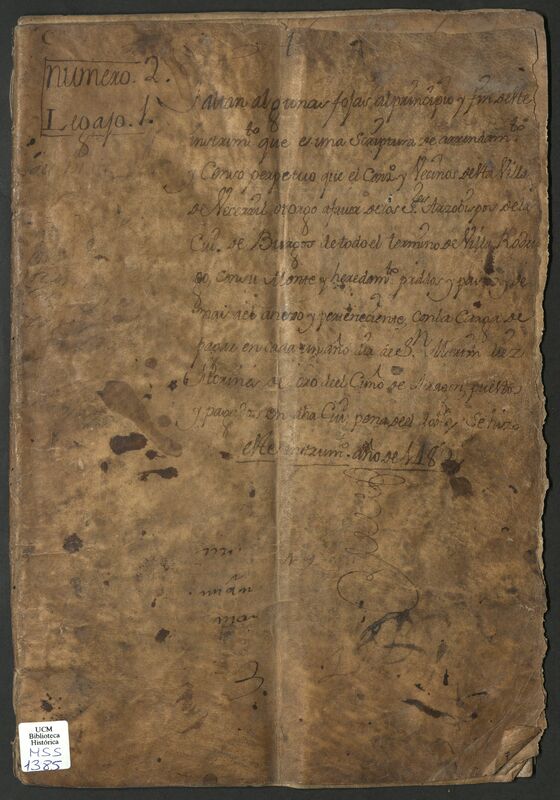 numero. 2.
Legajo. 1.
faltan algunas fojas, al principio y fin deste
instrum.to que es una Scriptura de arrendam.to
y Censo perpetuo que el Conz.o y Vecinos desta Villa
de otorgo afavor de los S.res Arzobispos de la
Ciu.d de Burgos de todo el termino de Villa Rodri
go, con su Monte y heredam.to prados y pastos y de
mas a el anexo y perteneciente, con la Carga de
pagar en cada un año dia de S.n Martin
de oro del Cuño de Aragon puestos
y pagados en dha Ciu.d pena del Se hizo
este instrum.to año de
UCM
Biblioteca
Histórica
MSS
1385